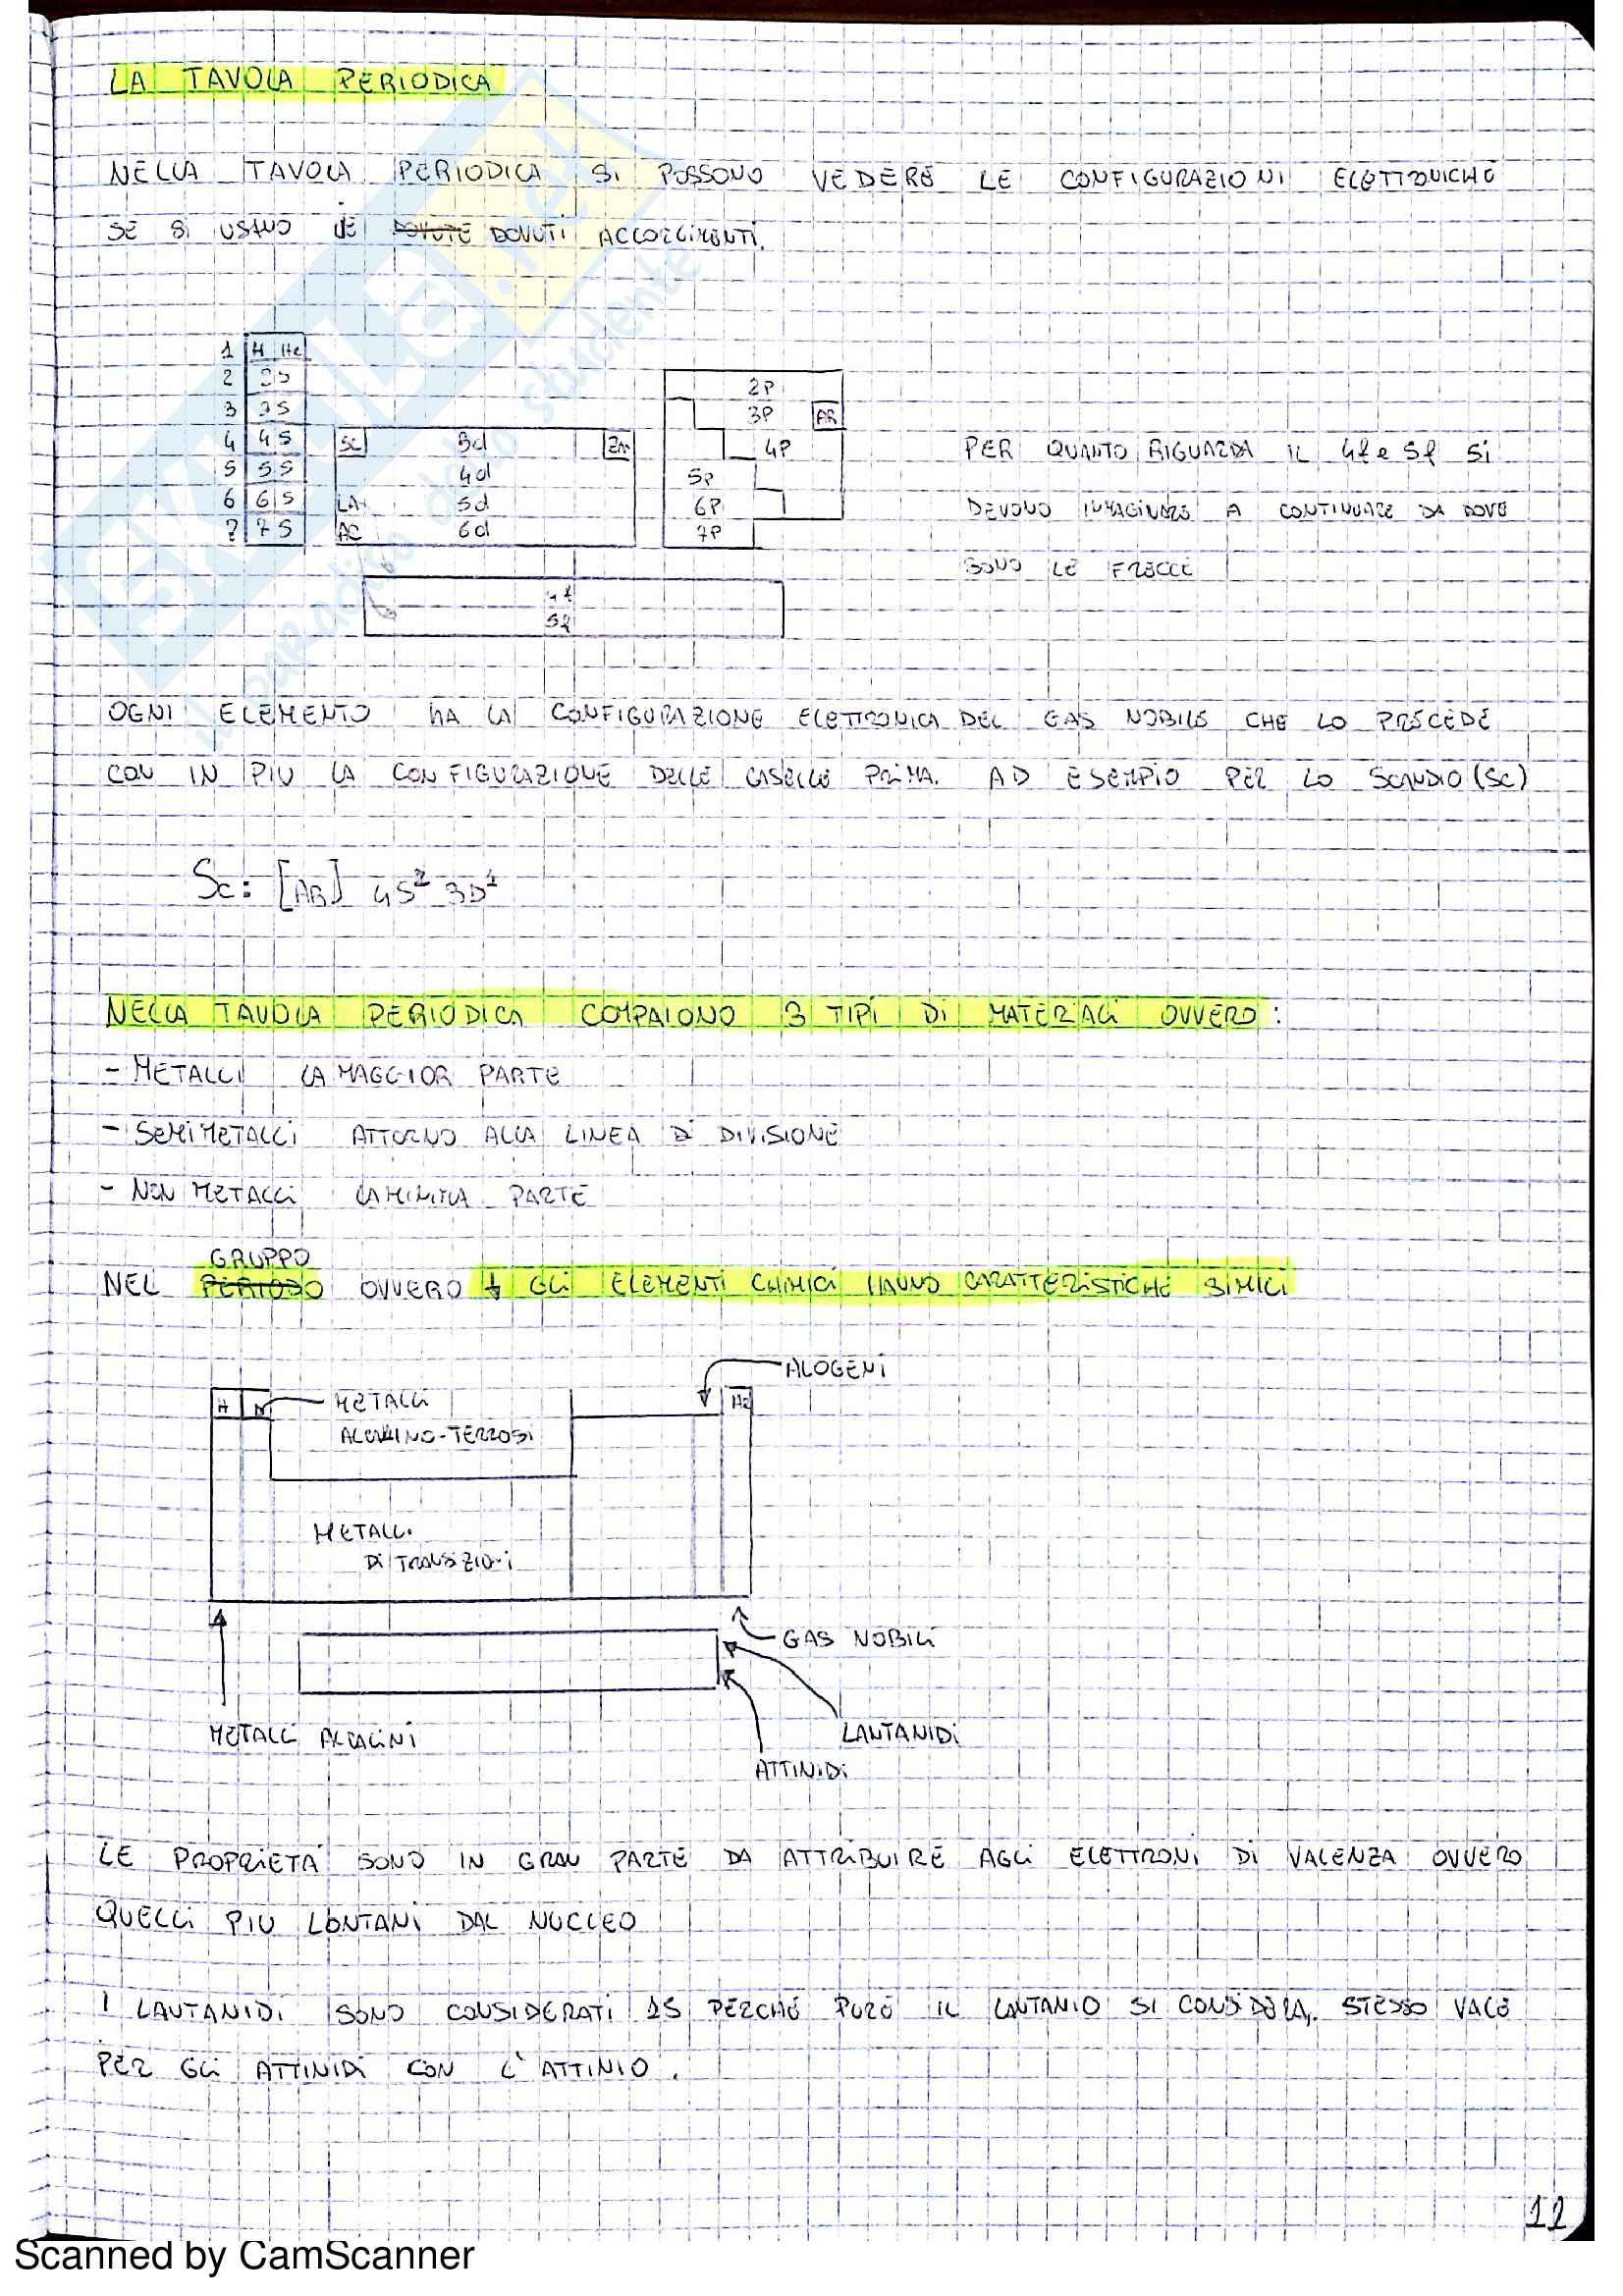 LA TAVOLA PERIODICA
NELLA TAVOLA PERIODICA SI POSSONO VEDERE LE CONFIGURAZIONI ELETTRONICHE
SE SI USANO I DOVUTE DOVUTI ACCORGIMENTI.
1 H He
2 2S
3 3S
4 4S
5 5S
6 6S
7 7S
SC 3d ZN
4d
LA 5d
AC 6d
2P
3P AR
4P
5P
6P
7P
4f
5f
PER QUANTO RIGUARDA IL 4f e 5f SI
DEVONO IMMAGINARE A CONTINUARE DA DOVE
SONO LE FRECCE
OGNI ELEMENTO HA LA CONFIGURAZIONE ELETTRONICA DEL GAS NOBILE CHE LO PRECEDE
CON IN PIU LA CONFIGURAZIONE DELLE CASELLE PRIMA. AD ESEMPIO PER LO SCANDIO (SC)
Sc: [AR] 4S² 3D¹
NELLA TAVOLA PERIODICA COMPAIONO 3 TIPI DI MATERIALI OVVERO:
- METALLI LA MAGGIOR PARTE
- SEMIMETALLI ATTORNO ALLA LINEA DI DIVISIONE
- NON METALLI LA MINIMA PARTE
GRUPPO
NEL PERIODO OVVERO ↓ GLI ELEMENTI CHIMICI HANNO CARATTERISTICHE SIMILI
ALOGENI
H
METALLI
ALCALINO-TERROSI
HE
METALLI
DI TRANSIZIONI
GAS NOBILI
METALLI ALCALINI
LANTANIDI
ATTINIDI
LE PROPRIETÁ SONO IN GRAN PARTE DA ATTRIBUIRE AGLI ELETTRONI DI VALENZA OVVERO
QUELLI PIU LONTANI DAL NUCLEO
I LANTANIDI SONO CONSIDERATI 15 PERCHÉ PURE IL LANTANIO SI CONSIDERA, STESSO VALE
PER GLI ATTINIDI CON L'ATTINIO.
11
Scanned by CamScanner